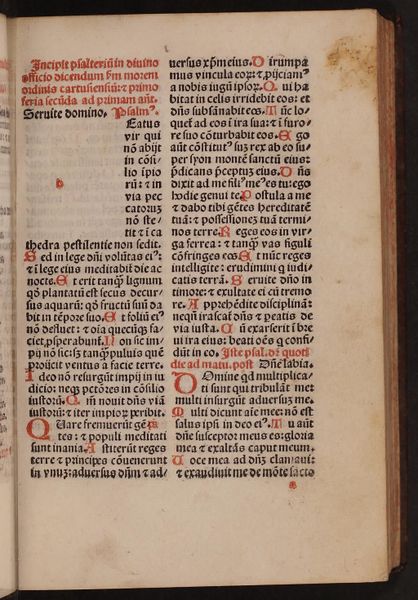 Incipit psalteriū in diuino
officio dicendum ẜm morem
ordinis cartusiensiū: ⁊ primo
feria secūda ad primam añ.
Seruite domino. Psalmꝰ.
Eatus
vir qui
nō abijt
in cōsi⸗
lio īpio⸗
rū: ⁊ in
via pec
catorum
nō ste⸗
tit ⁊ ī ca
thedra pestilentie non sedit.
Sed in lege dñi volūtas eiꝰ:
⁊ ī lege eius meditabiť die ac
nocte. Et erit tanqꝫ lignum
qḋ plantatū est secus decur⸗
sus aquarū: qḋ fructū suū da
bit in tēpore suo. Et foliū eiꝰ
nō defluet: ⁊ oīa quecūqꝫ fa⸗
ciet, ꝓsperabunť. Non sic im⸗
pij nō sic: sꝫ tanqꝫ puluis quē
proijcit ventus a facie terre.
Ideo nō resurgūt impij in iu
dicio: neqꝫ pctōres in cōsilio
iustorū. Qm̄ nouit dñs viā
iustorū: ⁊ iter impioꝝ peribit.
Quare fremuerūt gē⸗
tes: ⁊ populi meditati
sunt inania. Astiterūt reges
terre ⁊ principes cōuenerunt
in vnuꝫ: aduersus dñm ⁊ ad⸗
uersus xp̄m eius. Dirumpa
mus vincula eoꝝ: ⁊ ꝓijciamꝰ
a nobis iugū ipsoꝝ. Qui ha
bitat in celis irridebit eos: et
dñs subsānabit eos. Tūc lo⸗
queť ad eos ī ira sua: ⁊ ī furo⸗
re suo cōturbabit eos. Ego
aūt cōstitutꝰ suꝫ rex ab eo su⸗
per syon montē sanctū eius:
p̄dicans p̄ceptuꝫ eius. Dñs
dixit ad me filiꝰ meꝰ es tu: ego
hodie genui te. Postula a me
⁊ dabo tibi gētes hereditatē
tuā: ⁊ possessionē tuā termi⸗
nos terre. Reges eos in vir⸗
ga ferrea: ⁊ tanqꝫ vas figuli
cōfringes eos. Et nūc reges
intelligite: erudimini q̄ iudi⸗
catis terrā. Seruite dño in
timore: ⁊ exultate ei cū tremo
re. Apprehēdite disciplinā:
neqn̄ irascať dñs ⁊ peatis de
via iusta. Cū exarserit ī bre
ui ira eius: beati oēs q̄ confi⸗
dūt in eo. Iste psal. dr̄ quoti
die ad matu. post Dñe labia.
Domine qd multiplica⸗
ti sunt qui tribulāt me:
multi insurgūt aduersuꝫ me.
Multi dicunt aīe mee: nō est
salus ipsi in deo eiꝰ. Tu aūt
dñe susceptor meus es: gloria
mea ⁊ exaltās caput meum.
Uoce mea ad dñꝫ clamaui:
⁊ exaudiuit me de mōte sācto